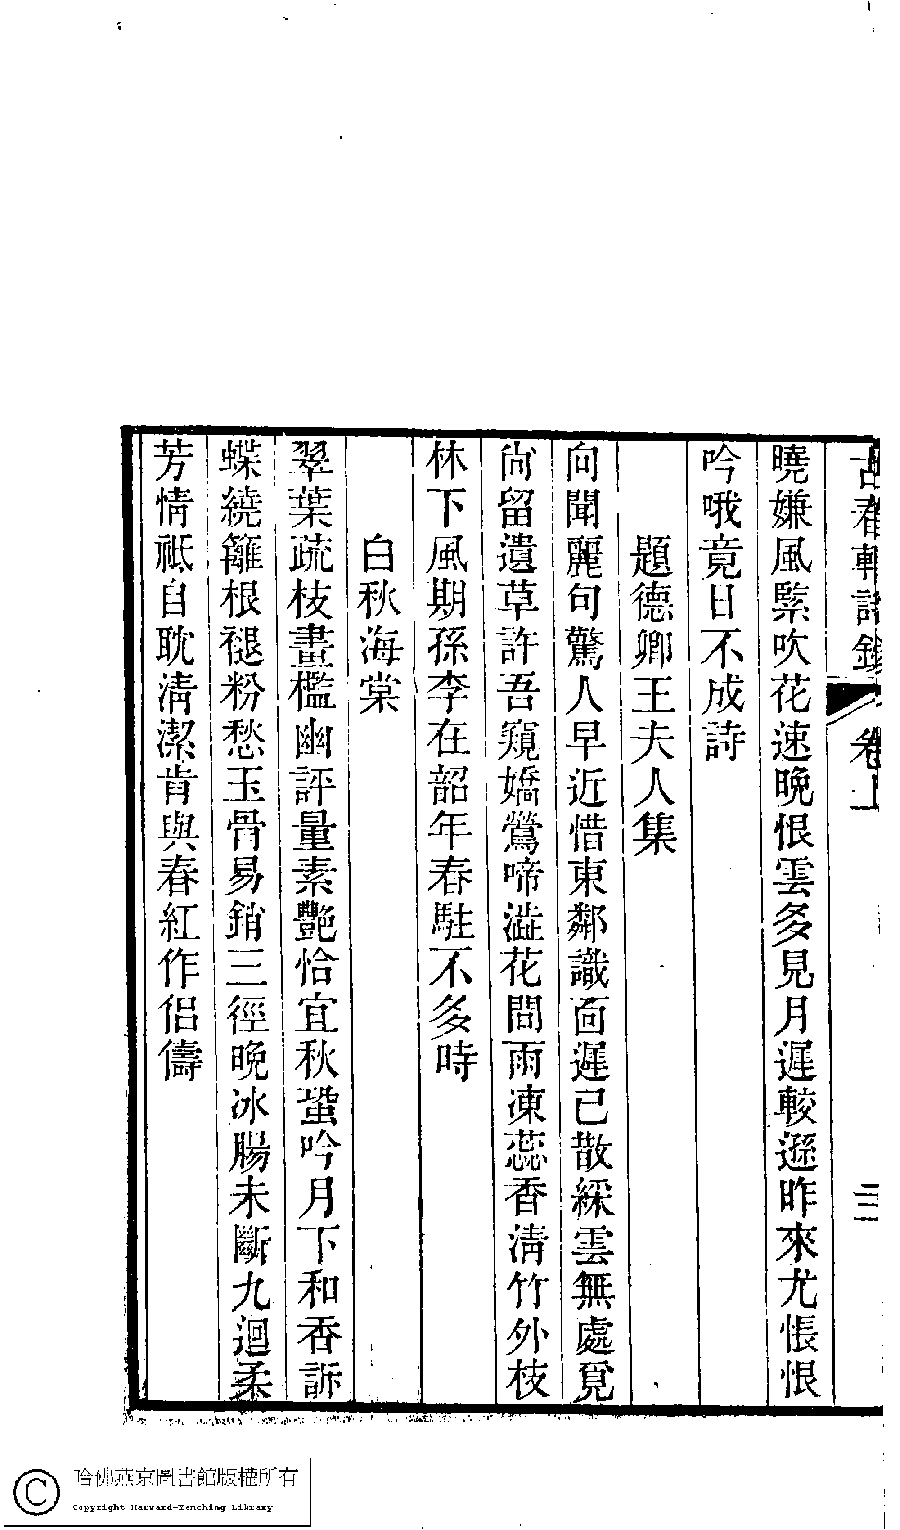 古春軒詩鈔 卷上 三
曉嫌風緊吹花速晚恨雲多見月遲較遜昨來尤悵恨
吟哦竟日不成詩
題德卿王夫人集
向聞麗句驚人早近惜東鄰識面遲已散綵雲無處覓
尚留遺草許吾窺嬌鶯啼澁花間雨凍蕊香清竹外枝
林下風期孫李在韶年春駐不多時
白秋海棠
翠葉疏枝畫檻幽評量素艷恰宜秋蛩吟月下和香訴
蝶繞籬根褪粉愁玉骨易銷三徑晚冰腸未斷九迴柔
芳情祗自耽清潔肯與春紅作侶儔
哈佛燕京圖書館版權所有
Copyright Harvard-Yenching Library